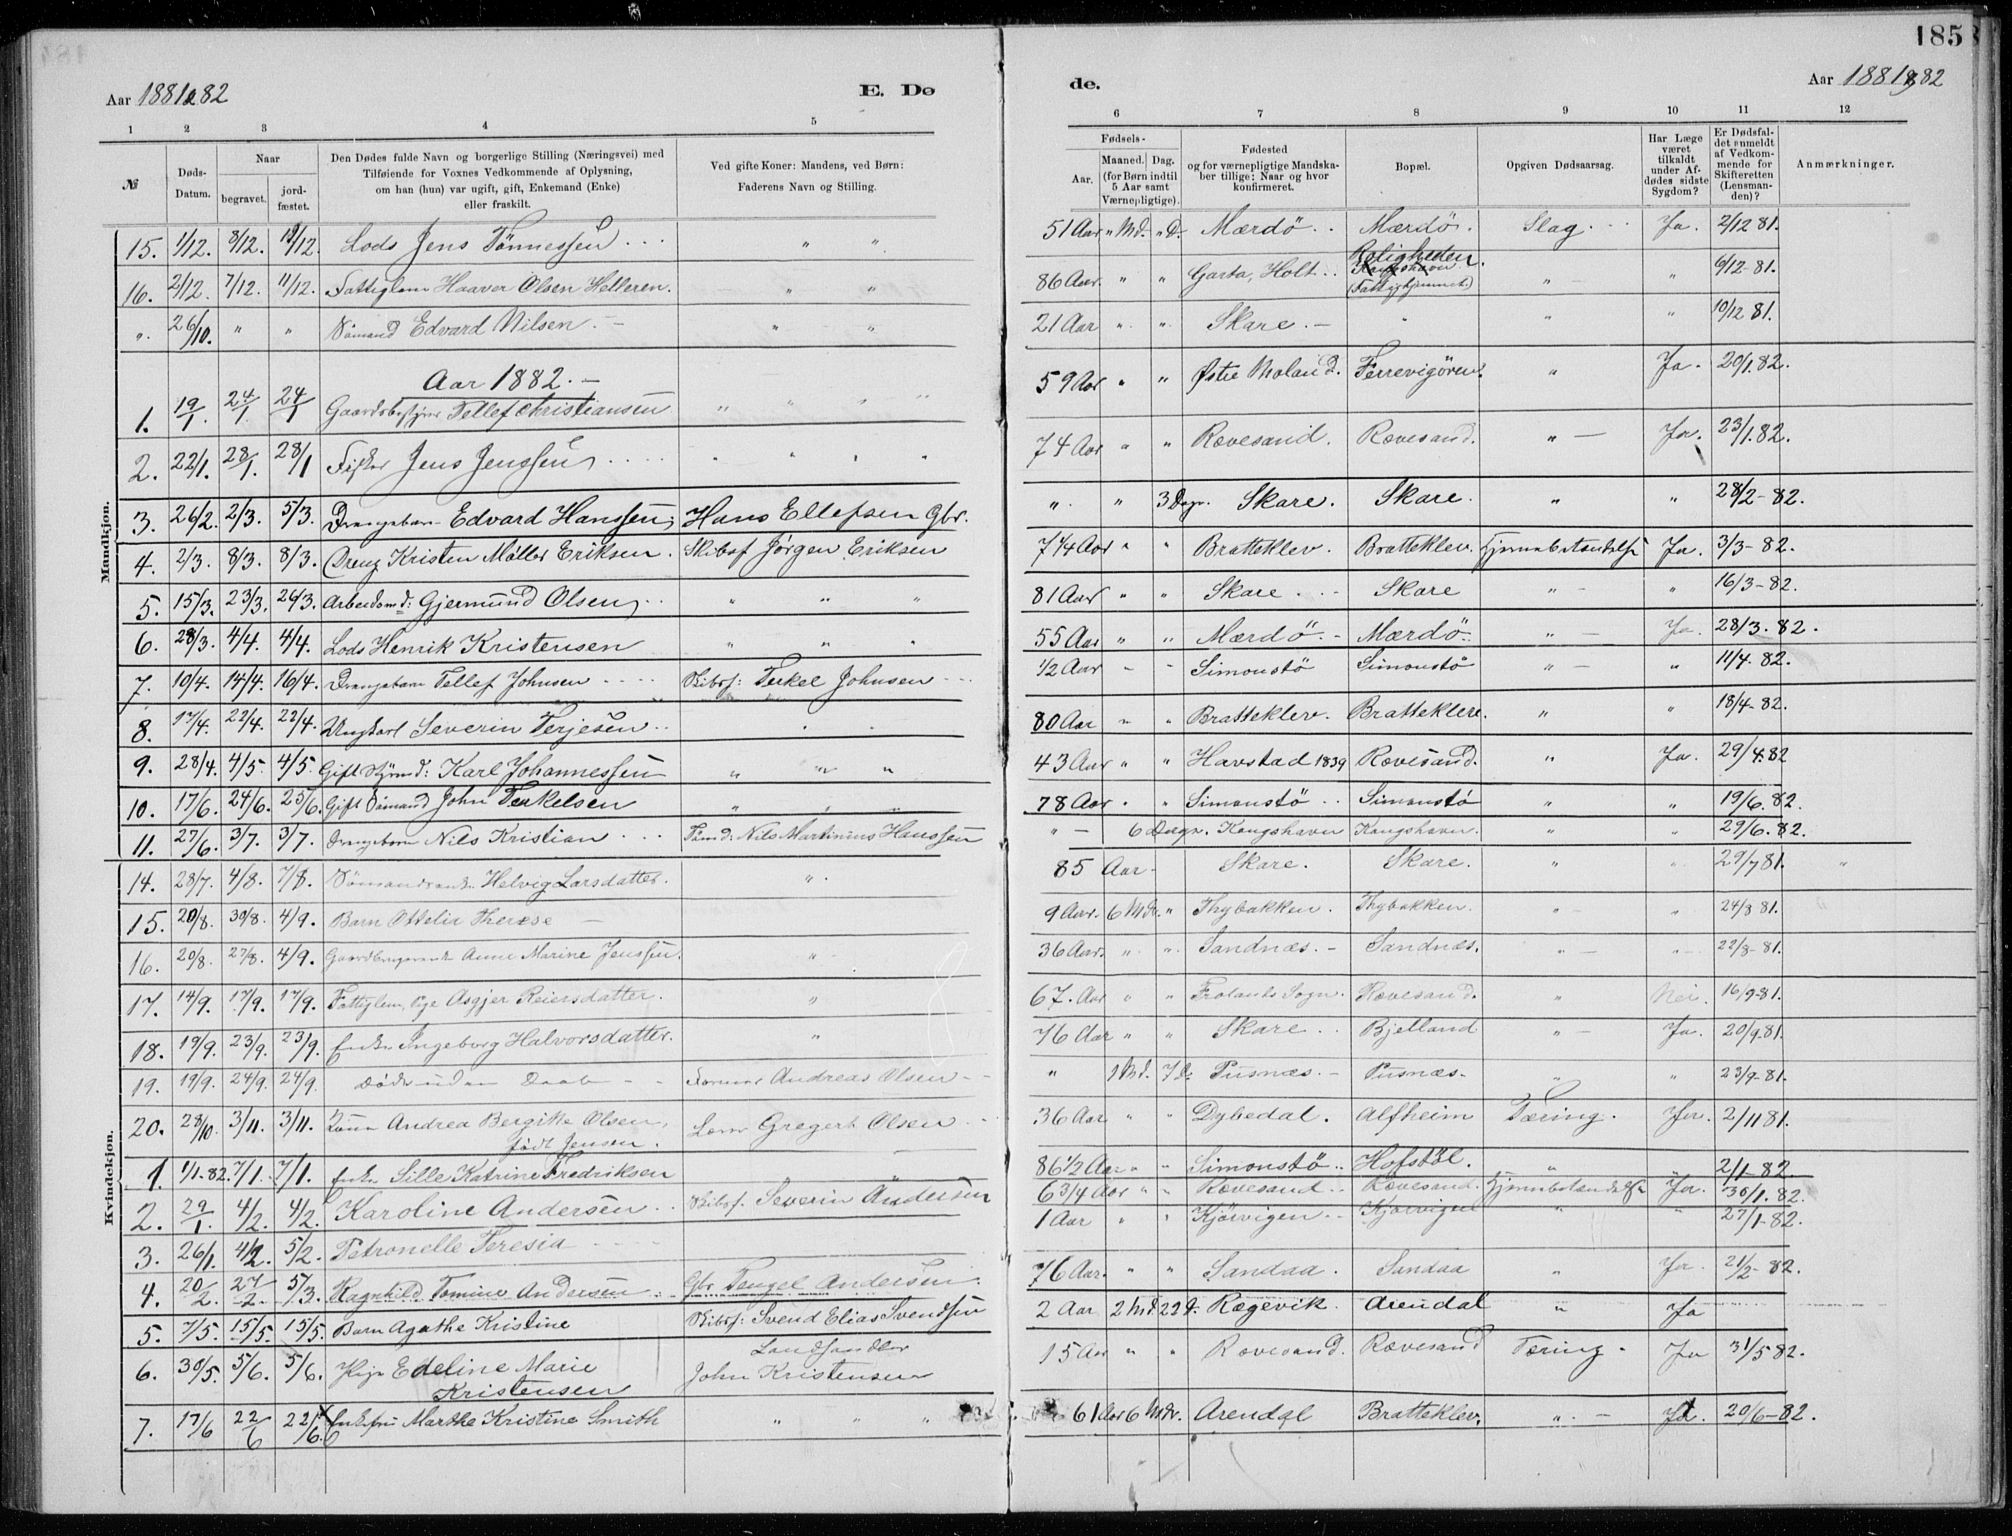 185
Aar 1881 & 82
E. Dø
de.
Aar 1881 & 82
1 2 3 4 5 6 7 8 9 10 11 12
№
Døds-Datum.
Naar
begravet.
jordfæstet.
Den Dødes fulde Navn og borgerlige Stilling (Næringsvei) med
Tilføiende for Voxnes Vedkommende af Oplysning,
om han (hun) var ugift, gift, Enkemand (Enke)
eller fraskilt.
Ved gifte Koner: Mandens, ved Børn:
Faderens Navn og Stilling.
Fødsels-
Aar.
Maaned. Dag.
(for Børn indtil
5 Aar samt
Værnepligtige).
Fødested
og for værnepligtige Mandska-
ber tillige: Naar og hvor
konfirmeret.
Bopæl.
Opgiven Dødsaarsag.
Har Læge
været
tilkaldt
under Af-
dødes sidste
Sygdom?
Er Dødsfal-
det anmeldt
af Vedkom-
mende for
Skifteretten
(Lensman-
den)?
Anmærkninger.
Mandkjøn.
15. 1/12. 8/12. 11/12. Lods Jens Tønnessen " " 51 Aar " Md. " D. Mærdö Mærdö. Slag. Ja. 2/12 81.
16. 2/12. 7/12. 11/12. Fattiglem Haaver Olsen Helleren. " " 86 Aar. " " Garta, Holt. Roligheden. (Fattighjemmet) " " 6/12-81.
". 26/10. " " Sömand Edvard Nilsen. " " 21 Aar " " Skare. " " " 10/12 81.
Aar 1882.
1. 19/1. 24/1. 24/1 Gaardsbestyrer Tellef Christiansen " " " " 59 Aar " " Østre Moland. Ferrevigören. " Ja. 20/1.82.
2. 22/1. 28/1 28/1 Fisker Jens Jenssen " " " " 74 Aar " " Rævesand. Rævesand. " Ja. 23/1.82.
3. 26/2. 2/3. 5/3. Drengebarn Edvard Hanssen, Hans Ellefsen Gbr. " " 3 Dage. Skare. Skare. " " 28/2-82.
4. 2/3. 8/3. 8/3. Dreng Kristen Möller Eriksen. Skibsf Jörgen Eriksen 7 1/4 Aar " " Bratteklev. Bratteklev. Hjernebetændelse Ja. 3/3-82.
5. 15/3. 23/3. 26/3. Arbeidsmd: Gjermund Olsen " " " 81 Aar " " Skare Skare " " 16/3-82.
6. 28/3. 4/4. 4/4. Lods Henrik Kristensen " " " 55 Aar " " Mærdö. Mærdö. " Ja. 28/3.82.
7. 10/4. 14/4. 16/4. Drengebarn Tellef Johnsen Skibsf: Terkel Johnsen 1/2 Aar " " Simonstö Simonstö " " 11/4-82.
8. 17/4. 22/4. 22/4. Ungkarl Severin Terjesen " " 80 Aar " " Bratteklev. Bratteklev. " " 18/4-82.
9. 28/4. 4/5. 4/5. Gift Styrmd: Karl Johannessen " " " 43 Aar " " Havstad 1839 Rævesand. " Ja. 29/4.82
10. 17/6. 24/6. 25/6. Gift Sömand John Terkelsen " " " 78 Aar " " Simonstö Simonstö " " 19/6.82.
11. 27/6. 3/7. 3/7. Drengebarn Nils Kristian Sömd: Nils Martinius Hanssen " 6 Dage. Kongshavn Kongshavn. " " 29/6.82.
Kvindekjøn.
14. 28/7. 4/8. 7/8. Sömandsenke Helvig Larsdatter. " 85 Aar. Skare. Skare. " " 29/7 81. "
15. 20/8. 30/8. 4/9. Barn Ottelia Therese 9 Aar. 6 Mdr. " Thybakken. Thybakken. " " 24/8 81.
16. 20/8. 27/8. 4/9. Anne Marine Jenssen. " 36 Aar. " " Sandnæs. Sandnæs. " " 22/8-81.
17. 14/9. 17/9. 17/9. Fattiglem, Pige Asgjer Reiersdatter. " 67. Aar " " Frolands Sogn. Rævesand. " Nei. 16/9-81.
18. 19/9. 23/9. 23/9. Enke Ingeborg Halvorsdatter. " 76 Aar " " Skare Bjelland " Ja. 20/9.81.
19. 19/9. 24/9. 24/9. Döde uden Daab Andreas Olsen " 1 Md. 7 D: Pusnæs. Pusnæs. " " 23/9-81.
20. 28/10. 3/11. 3/11. Kone Andrea Bergitte Olsen, Gregert Olsen 36 Aar " " Dybedal. Alfheim Tæring. Ja. 2/11 81.
födt Jensen.
1. 1/1-82. 7/1. 7/1. Enke Sille Katrine Fredriksen " 86 1/2 Aar " " Simonstö Hofstöl. " " 2/1-82.
2. 29/1. 4/2. 4/2. Karoline Andersen Skibsf. Severin Andersen 6 3/4 Aar " " Rævesand Rævesand. Hjernebetændelse Ja. 30/1.82.
3. 26/1. 4/2. 5/2. Petronelle Teresia 1 Aar " " Kjörvigen Kjörvigen " " 27/1-82.
4. 20/2. 27/2. 5/3. Ragnhild Tomine Andersen Gbr Tengel Andersen. 76 Aar. " " Sandaa. Sandaa " Ja. 21/2-82.
5. 7/5. 15/5. 15/5. Barn Agathe Kristine Skibsf: Svend Elias Svendsen 2 Aar 2 Md 22 d: Rægevik. Arendal " Ja
6. 30/5. 5/6. 5/6. Pige Edeline Marie Landhandler 15 Aar " " Rævesand. Rævesand Tæring. Ja 31/5 82.
Kristensen John Kristensen
7. 17/6 22/6 22/6. Enkefru Marthe Kristine Smith " " " 61 Aar 6 Mdr. Arendal Bratteklev. " Ja 20/6-82.